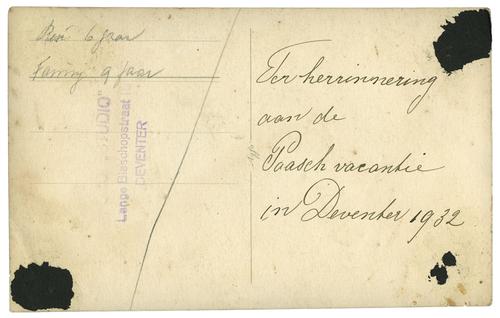 René 6 jaar
Fanny 9 jaar
UDIO"
Lange Bisschopstraat
DEVENTER
Ter herrinnering
aan de
Paasch vacantie
in Deventer 1932